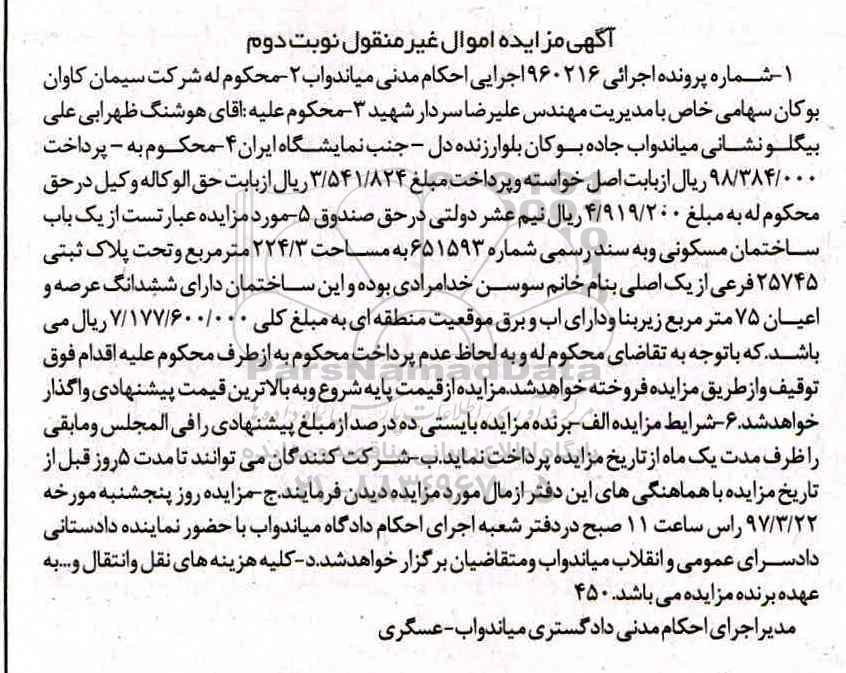 آگهی مزایده اموال غیر منقول نوبت دوم
۱-شماره پرونده اجرائی ۹۶۰۲۱۶ اجرایی احکام مدنی میاندواب ۲-محکوم له شرکت سیمان کاوان
بوکان سهامی خاص با مدیریت مهندس علیرضا سردار شهید ۳-محکوم علیه :اقای هوشنگ ظهرابی علی
بیگلو نشانی میاندواب جاده بوکان بلوار زنده دل – جنب نمایشگاه ایران ۴-محکوم به – پرداخت
۹۸/۳۸۴/۰۰۰ ریال از بابت اصل خواسته و پرداخت مبلغ ۳/۵۴۱/۸۲۴ ریال از بابت حق الوکاله وکیل در حق
محکوم له به مبلغ ۴/۹۱۹/۲۰۰ ریال نیم عشر دولتی در حق صندوق ۵-مورد مزایده عبارتست از یک باب
ساختمان مسکونی وبه سند رسمی شماره ۶۵۱۵۹۳ به مساحت ۲۲۴/۳ متر مربع وتحت پلاک ثبتی
۲۵۷۴۵ فرعی از یک اصلی بنام خانم سوسن خدامرادی بوده و این ساختمان دارای ششدانگ عرصه و
اعیان ۷۵ متر مربع زیر بنا ودارای اب و برق موقعیت منطقه ای به مبلغ کلی ۷/۱۷۷/۶۰۰/۰۰۰ ریال می
باشد.که باتوجه به تقاضای محکوم له و به لحاظ عدم پرداخت محکوم به از طرف محکوم علیه اقدام فوق
توقیف واز طریق مزایده فروخته خواهد شد.مزایده از قیمت پایه شروع وبه بالاترین قیمت پیشنهادی واگذار
خواهد شد.۶-شرایط مزایده الف-برنده مزایده بایستی ده درصد از مبلغ پیشنهادی را فی المجلس ومابقی
را ظرف مدت یک ماه از تاریخ مزایده پرداخت نماید.ب-شرکت کنندگان می توانند تا مدت ۵روز قبل از
تاریخ مزایده با هماهنگی های این دفتر از مال مورد مزایده دیدن فرمایند.ج-مزایده روز پنجشنبه مورخه
۹۷/۳/۲۲ راس ساعت ۱۱ صبح در دفتر شعبه اجرای احکام دادگاه میاندواب با حضور نماینده دادستانی
دادسرای عمومی و انقلاب میاندواب ومتقاضیان برگزار خواهد شد.د-کلیه هزینه های نقل وانتقال و...به
عهده برنده مزایده می باشد.۴۵۰
مدیر اجرای احکام مدنی دادگستری میاندواب-عسگری
ParsNamadData